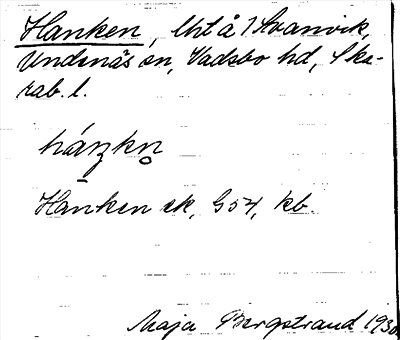 Hanken, Urt å 1 Svanvik,
Undenäs sn, Vadsbo hd, Ska-
rab. l.
Hanken ek, G 54, kb.
Maja Bergstrand 1930